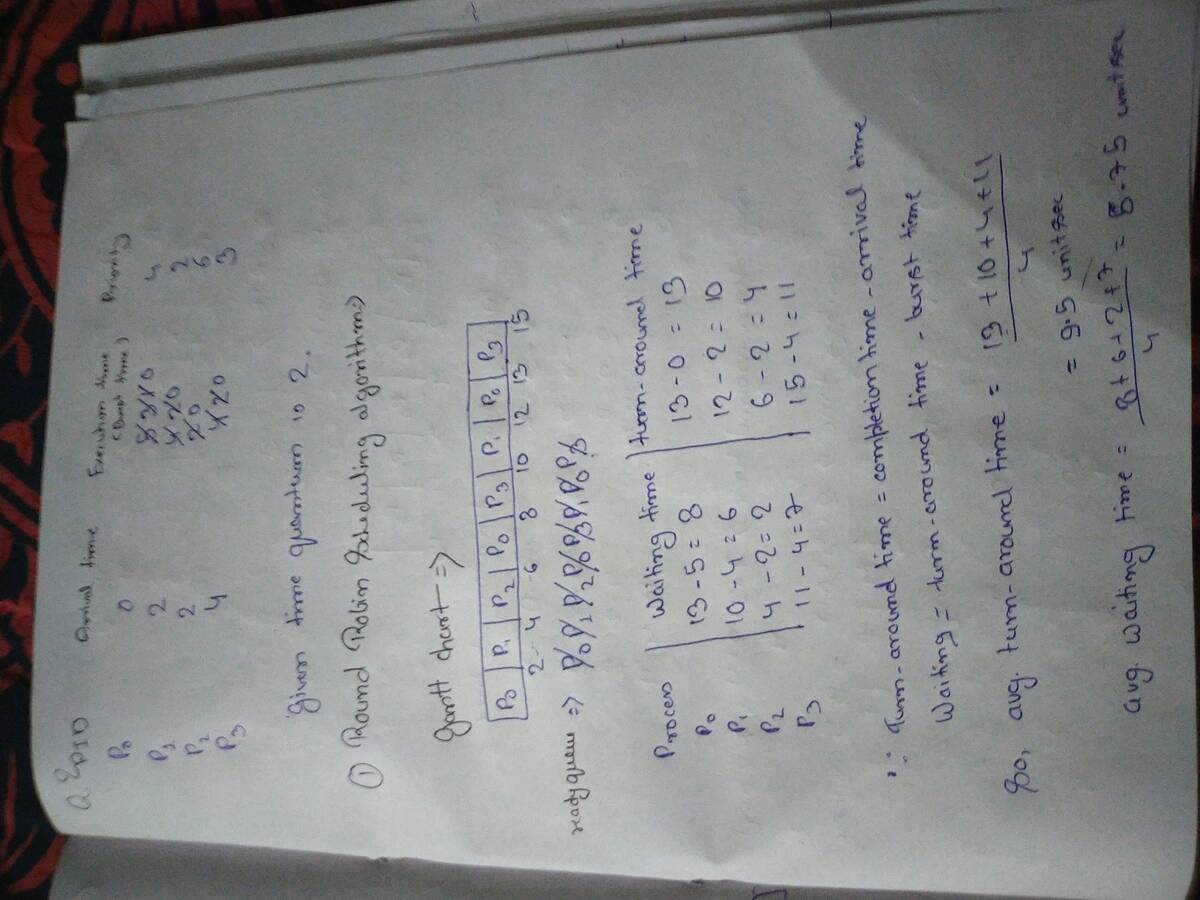 Q.2 PID Arrival time Execution time (Burst time) Priority
P0 0 5 3 1 0 4
P1 2 4 2 0 2
P2 2 2 0 6
P3 4 4 2 0 3
Given time quantum is 2.
① Round Robin Scheduling algorithm⇒
Gantt chart ⇒
P0 P1 P2 P0 P3 P1 P0 P3
2 4 6 8 10 12 13 15
ready queue ⇒ P0 P1 P2 P0 P3 P1 P0 P3
Process Waiting time turn-around time
P0 13 - 5 = 8 13 - 0 = 13
P1 10 - 4 = 6 12 - 2 = 10
P2 4 - 2 = 2 6 - 2 = 4
P3 11 - 4 = 7 15 - 4 = 11
∵ Turn-around time = completion time - arrival time
Waiting = turn-around time - burst time
So, avg. turn-around time = 13 + 10 + 4 + 11 / 4
= 9.5 unit sec
avg. waiting time = 8 + 6 + 2 + 7 / 4 = 5.75 unit sec